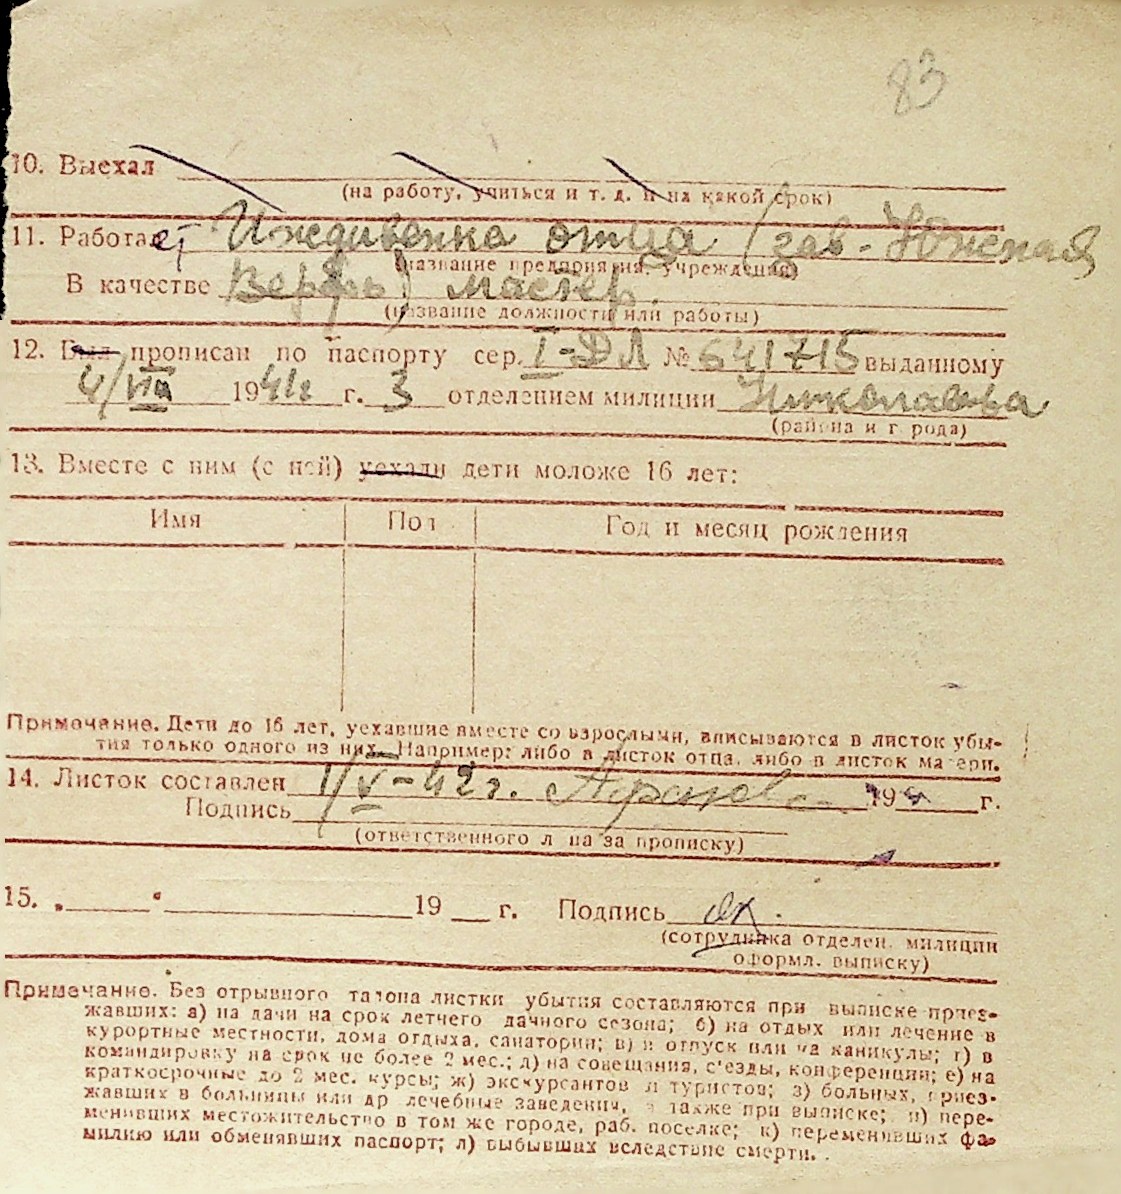 83
10. Выехал
(на работу, учиться и т. д. и на какой срок)
11. Работает Иждивенка отца (зав. Южская
(название предприятия, учреждения)
В качестве Верфь) мастер.
(название должности или работы)
12. Был прописан по паспорту сер. I-ДЛ № 641715 выданному
4/VIII 1941 г. 3 отделением милиции Николаева
(района и города)
13. Вместе с ним (с ней) уехали дети моложе 16 лет:
Имя Пол Год и месяц рождения
Примечание. Дети до 16 лет, уехавшие вместе со взрослыми, вписываются в листок убы-
тия только одного из них. Например: либо в листок отца, либо в листок матери.
14. Листок составлен 1/V-42 г. 194 г.
Подпись
(ответственного лица за прописку)
15. „ “ 19 г. Подпись
(сотрудника отделен. милиции
оформл. выписку)
Примечание. Без отрывного талона листки убытия составляются при выписке приез-
жавших: а) на дачи на срок летнего дачного сезона; б) на отдых или лечение в
курортные местности, дома отдыха, санатории; в) в отпуск или на каникулы; г) в
командировку на срок не более 2 мес.; д) на совещания, с'езды, конференции; е) на
краткосрочные до 2 мес. курсы; ж) экскурсантов и туристов; з) больных, приез-
жавших в больницы или др лечебные заведения, а также при выписке; и) пере-
менивших местожительство в том же городе, раб. поселке; к) переменивших фа-
милию или обменявших паспорт; л) выбывших вследствие смерти.